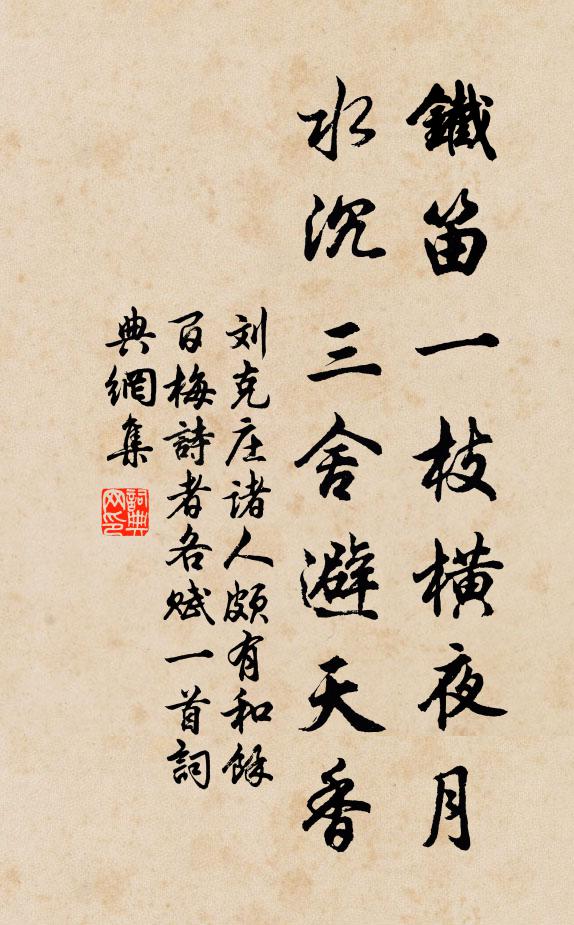 鐵笛一枝橫夜月
水沉三舍避天香
刘克庄諸人頗有和餘
百梅詩者各赋一首詞
典網集
詞典網印